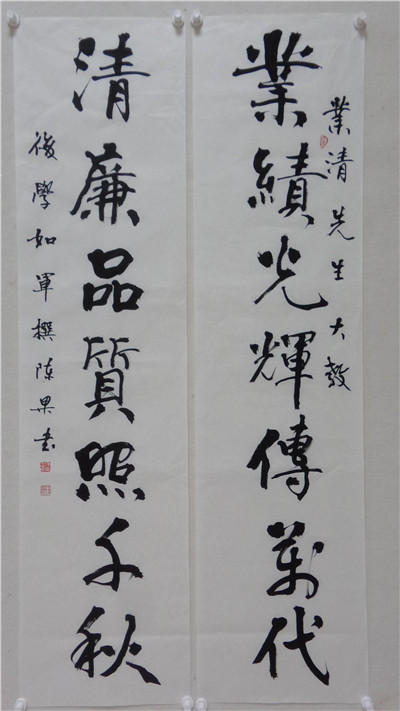 業清先生大教
業績光輝傳萬代
清廉品質照千秋
後學如軍撰陳果书